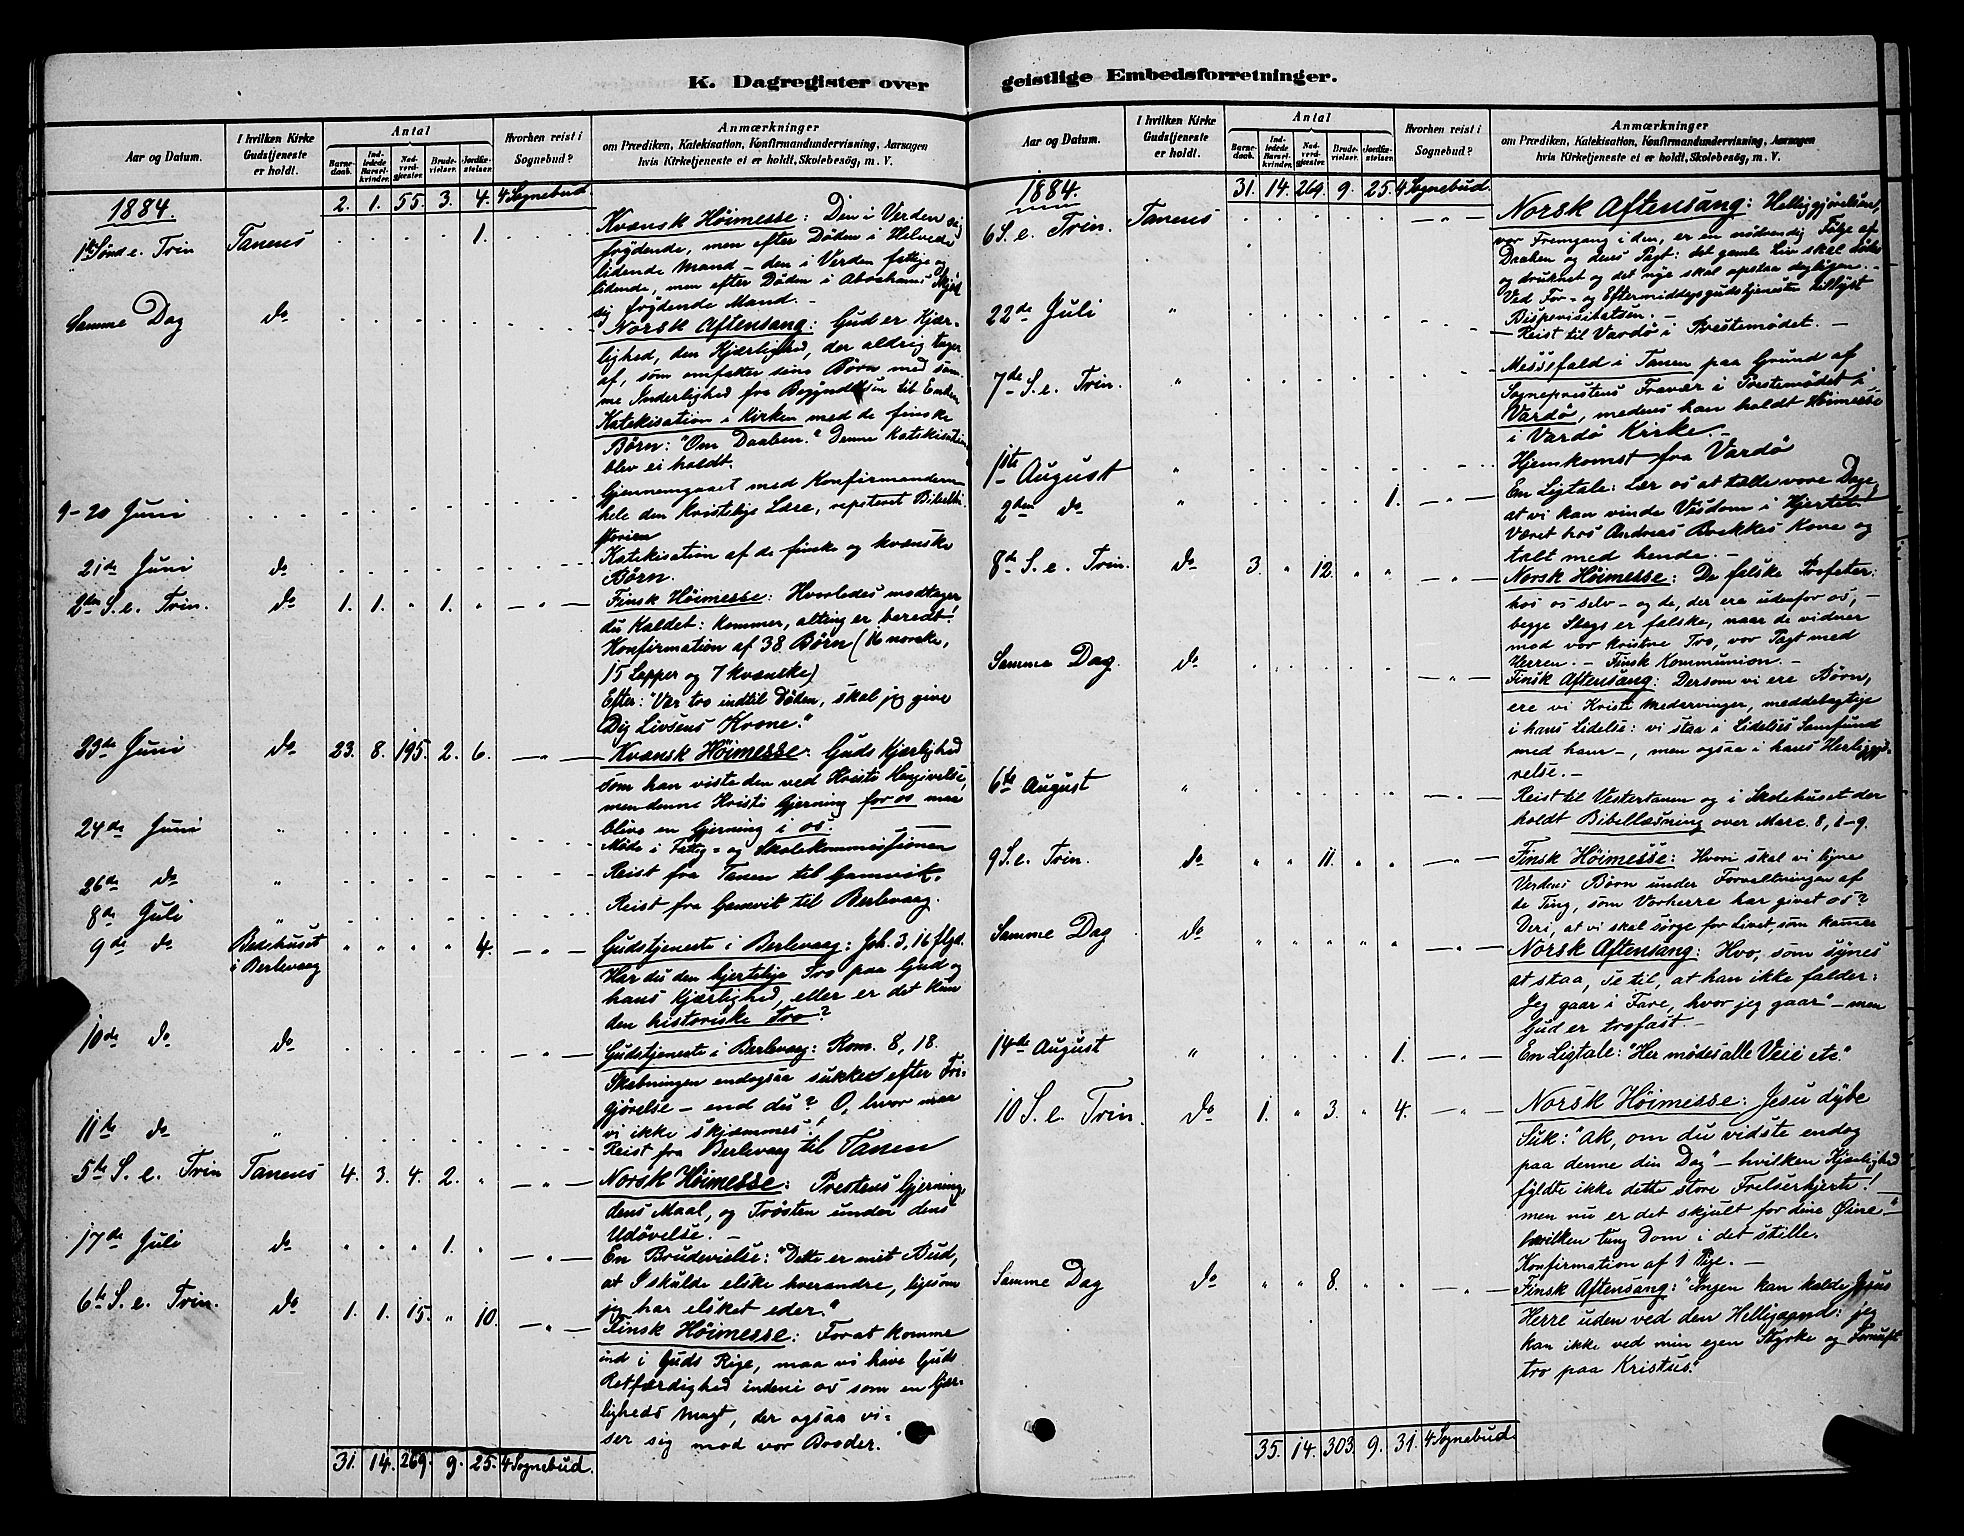 K. Dagregister over
Aar og Datum.
I hvilken Kirke
Gudstjeneste
er holdt.
Antal
Barne-
daab.
Ind-
ledede
Barsel-
kvinder.
Nad-
verd-
gjæster.
Brude-
vielser.
Jordfæ-
stelser.
Hvorhen reist i
Sognebud?
Anmærkninger
om Prædiken, Katekisation, Konfirmandundervisning, Aarsagen
hvis Kirketjeneste ei er holdt, Skolebesög, m. V.
1884. 2. 1. 55. 3. 4. 4 Sognebud.
1ste Sønd e. Trin Tanens 1. Kvænsk Höimesse: Den i Verden sig
frydende, men efter Døden i Helvede
lidende Mand – den i Verden fattige og
lidende, men efter Døden i Abrahams Skjød
sig frydende Mand. –
Samme Dag do Norsk Aftensang: Gud er Kjær-
lighed, den Kjærlighed, der aldrig tager
af, som omfatter sine Børn med sam-
me Inderlighed fra Begyndelsen til Enden
Katekisation i Kirken med de finske
Børn: "Om Daaben." Denne Katekisation
blev ei holdt.
9–20 Juni Gjennemgaaet med Konfirmanderne
hele den Kristelige Lære, repeteret Bibelhi-
storien
21de Juni do Katekisation af de finske og kvænske
Børn.
2den S. e. Trin. do 1. 1. " 1. " — " — Finsk Höimesse: Hvorledes modtager
du Kaldet: Kommer, alting er beredt!
Konfirmation af 38 Børn (16 norske,
15 Lapper og 7 kvænske)
Efter: "Vær tro indtil Døden, skal jeg give
Dig Livsens Krone."
23de Juni do 23. 8. 195. 2. 6. — " — Kvænsk Höimesse. Guds Kjærlighed
som han viste den ved Kristi Hengivelse,
men denne Kristi Gjerning for os maa
blive en Gjerning i os. —
24de Juni " Møde i Fattig- og Skolekommissionen
26de do " Reist fra Tanen til Gamvik.
8de Juli " Reist fra Gamvik til Berlevaag.
9de do Bedehuset
i Berlevaag " " " " 4. — " — Gudstjeneste i Berlevaag: Joh. 3, 16 flgd.
Har du den hjertelige Tro paa Gud og
hans Kjærlighed, eller er det kun
den historiske Tro?
10de do do — " — Gudstjeneste i Berlevaag: Rom. 8, 18.
Skabningen endogsaa sukker efter Fri-
gjørelse – end du? O, hvor maa
vi ikke skjæmmes!
11te do " Reist fra Berlevaag til Tanen
5te S. e. Trin Tanens 4. 3. 4. 2. " — " — Norsk Höimesse: Prestens Gjerning
dens Maal, og Trøsten under dens
Udøvelse. –
17de Juli do " " " 1. " — " — En Brudevielse: "Dette er mit Bud,
at I skulde elske hverandre, ligesom
jeg har elsket eder."
6te S. e. Trin. do 1. 1. 15. " 10. — " — Finsk Höimesse: For at komme
ind i Guds Rige, maa vi have Guds
Retfærdighed indeni os som en Kjær-
ligheds Magt, der ogsaa vi-
ser sig mod vor Broder.
31. 14. 269. 9. 25. 4 Sognebud.
geistlige Embedsforretninger.
Aar og Datum.
I hvilken Kirke
Gudstjeneste
er holdt.
Antal
Barne-
daab.
Ind-
ledede
Barsel-
kvinder.
Nad-
verd-
gjæster.
Brude-
vielser.
Jordfæ-
stelser.
Hvorhen reist i
Sognebud?
Anmærkninger
om Prædiken, Katekisation, Konfirmandundervisning, Aarsagen
hvis Kirketjeneste ei er holdt, Skolebesög, m. V.
1884. 31. 14. 269. 9. 25. 4 Sognebud.
6 S. e. Trin. Tanens — " — Norsk Aftensang: Helliggjørelsen,
vor Fremgang i den, er en nødvendig Følge af
Daaben og dens Pagt: det gamle Liv skal dødes
og druknet og det nye skal opstaa dagligen. –
Ved For- og Eftermiddagsgudstjenesten tillyst
Bispevisitatsen. –
22de Juli " – Reist til Vardø i Prestemødet. –
7de S. e. Trin. " Messefald i Tanen paa Grund af
Sogneprestens Fravær i Prestemødet i
Vardø, medens han holdt Høimesse
i Vardø Kirke. –
1ste August " Hjemkomst fra Vardø
2den do " 1. — " — En Ligtale: Lær os at tælle vore Dage,
at vi kan vinde Visdom i Hjertet.
Været hos Andreas Brekkes Kone og
talt med hende. –
8de S. e. Trin. do 3. " 12. " " — " — Norsk Höimesse: De falske Profeter:
hos os selv – og de, der ere udenfor os, –
begge Slags er falske, naar de vidner
mod vor kristne Tro, vor Pagt med
Herren. – Finsk Kommunion. –
Samme Dag. do — " — Finsk Aftensang: Dersom vi ere Børn,
ere vi Kristi Medarvinger, meddelagtige
i hans Lidelse: vi staa i Lidelses Samfund
med ham –, men ogsaa i hans Herliggjø-
relse. –
6te August " Reist til Vestertanen og i Skolehuset der
holdt Bibellæsning over Marc. 8, 1–9.
9 S. e. Trin. do " " 11. " " — " — Finsk Höimesse: Hvori skal vi ligne
Verdens Børn under Forvaltningen af
de Ting, som Vorherre har givet os?
Deri, at vi skal sørge for Livet, som kommer
Samme Dag do " " " " " — " — Norsk Aftensang: Hvo, som synes
at staa, se til, at han ikke falder:
"Jeg gaar i Fare, hvor jeg gaar" – men
Gud er trofast. –
14de August " 1. — " — En Ligtale: "Her mødes alle Veie etc."
10 S. e. Trin. do 1. " 3. " 4. — " — Norsk Höimesse: Jesu dybe
Suk: "Ak, om du vidste endog
paa denne din Dag" – hvilken Kjærlighed
fyldte ikke dette store Frelserhjerte! –
men nu er det skjult for dine Øine." –
hvilken tung Dom i det stille.
Konfirmation af 1 Pige. –
Samme Dag do " " 8. " " — " — Finsk Aftensang: "Ingen kan kalde Jesus
Herre uden ved den Helligaand: jeg
kan ikke ved min egen Styrke og Fornuft
tro paa Kristus."
35. 14. 303. 9. 31. 4 Sognebud.